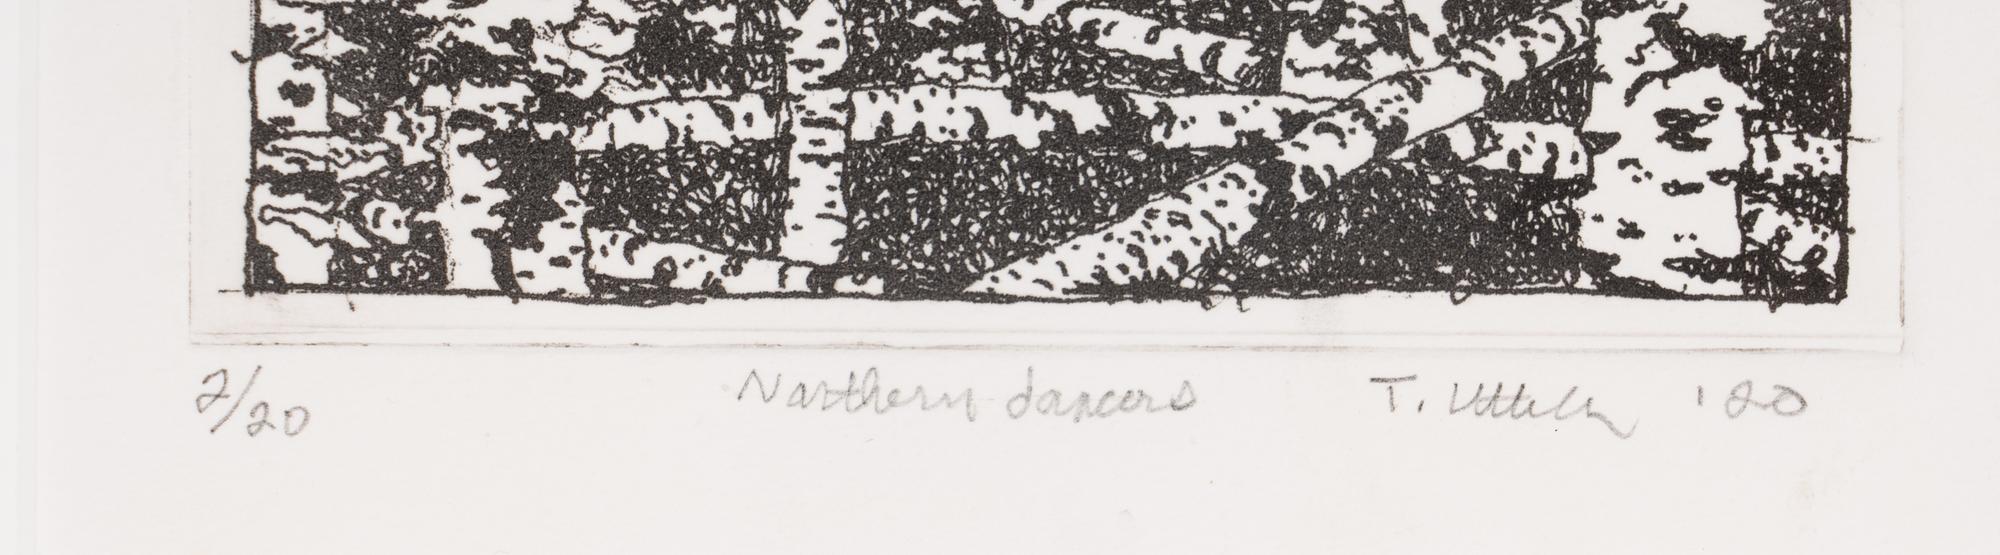 2/20 Northern dancers T. '20